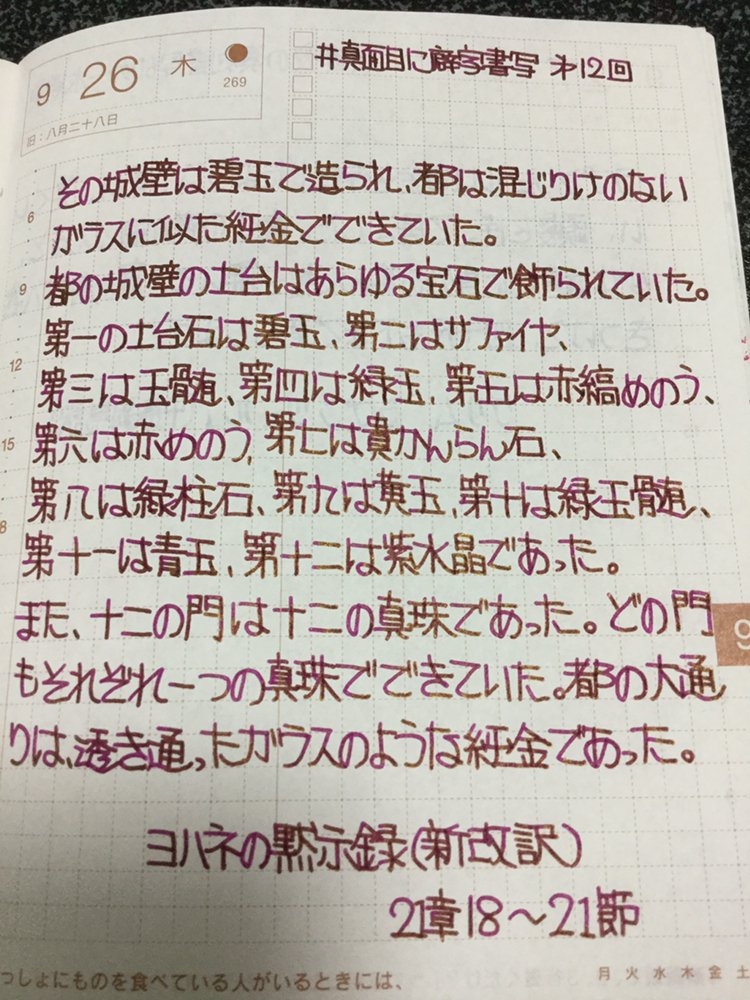 9 26 木
269
旧:八月二十八日
#真面目に癖字書写 才12回
その城壁は碧玉で造られ、都は混じりけのない
6
ガラスに似た純金でできていた。
9
都の城壁の土台はあらゆる宝石で飾られていた。
第一の土台石は碧玉、第二はサファイヤ、
12
第三は玉髄、第四は緑玉、第五は赤縞めのう、
15
第六は赤めのう、第七は貴かんらん石、
第八は緑柱石、第九は黄玉、第十は緑玉髄、
8
第十一は青玉、第十二は紫水晶であった。
また、十二の門は十二の真珠であった。どの門
9
もそれぞれ一つの真珠でできていた。都の大通
りは、透き通ったガラスのような純金であった。
ヨハネの黙示録(新改訳)
21章18～21節
っしょにものを食べている人がいるときには、
月 火 水 木 金 土